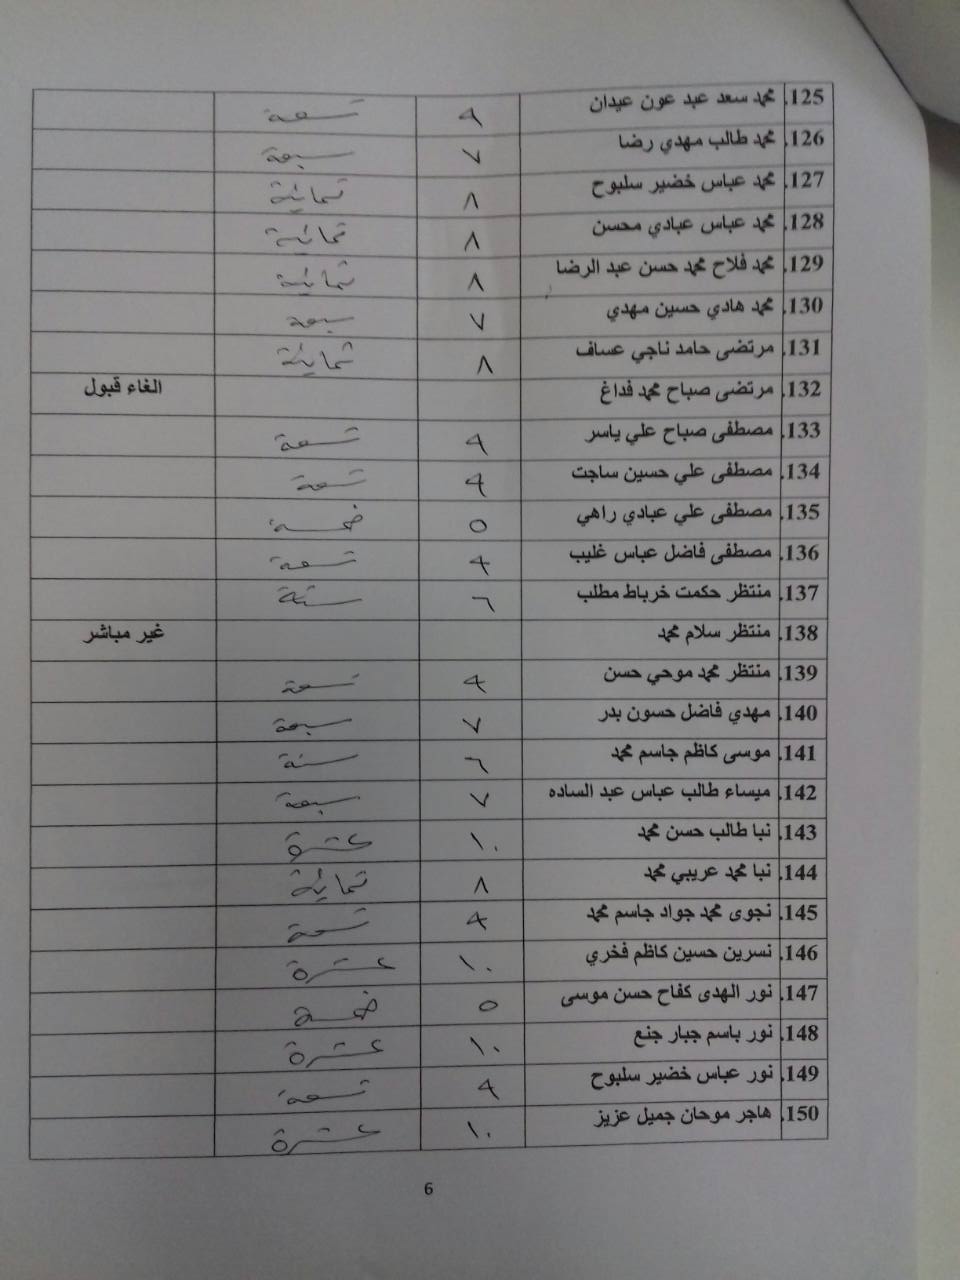 125. محمد سعد عبد عون عيدان ٩ تسعة
126. محمد طالب مهدي رضا ٧ سبعة
127. محمد عباس خضير سلبوح ٨ ثمانية
128. محمد عباس عبادي محسن ٨ ثمانية
129. محمد فلاح محمد حسن عبد الرضا ٨ ثمانية
130. محمد هادي حسين مهدي ٧ سبعة
131. مرتضى حامد ناجي عساف ٨ ثمانية
132. مرتضى صباح محمد فداغ الغاء قبول
133. مصطفى صباح علي ياسر ٩ تسعة
134. مصطفى علي حسين ساجت ٩ تسعة
135. مصطفى علي عبادي راهي ٥ خمسة
136. مصطفى فاضل عباس غليب ٩ تسعة
137. منتظر حكمت خرباط مطلب ٦ ستة
138. منتظر سلام محمد غير مباشر
139. منتظر محمد موحي حسن ٩ تسعة
140. مهدي فاضل حسون بدر ٧ سبعة
141. موسى كاظم جاسم محمد ٦ ستة
142. ميساء طالب عباس عبد الساده ٧ سبعة
143. نبا طالب حسن محمد ١٠ عشرة
144. نبا محمد عريبي محمد ٨ ثمانية
145. نجوى محمد جواد جاسم محمد ٩ تسعة
146. نسرين حسين كاظم فخري ١٠ عشرة
147. نور الهدى كفاح حسن موسى ٥ خمسة
148. نور باسم جبار جنع ١٠ عشرة
149. نور عباس خضير سلبوح ٩ تسعة
150. هاجر موحان جميل عزيز ١٠ عشرة
6